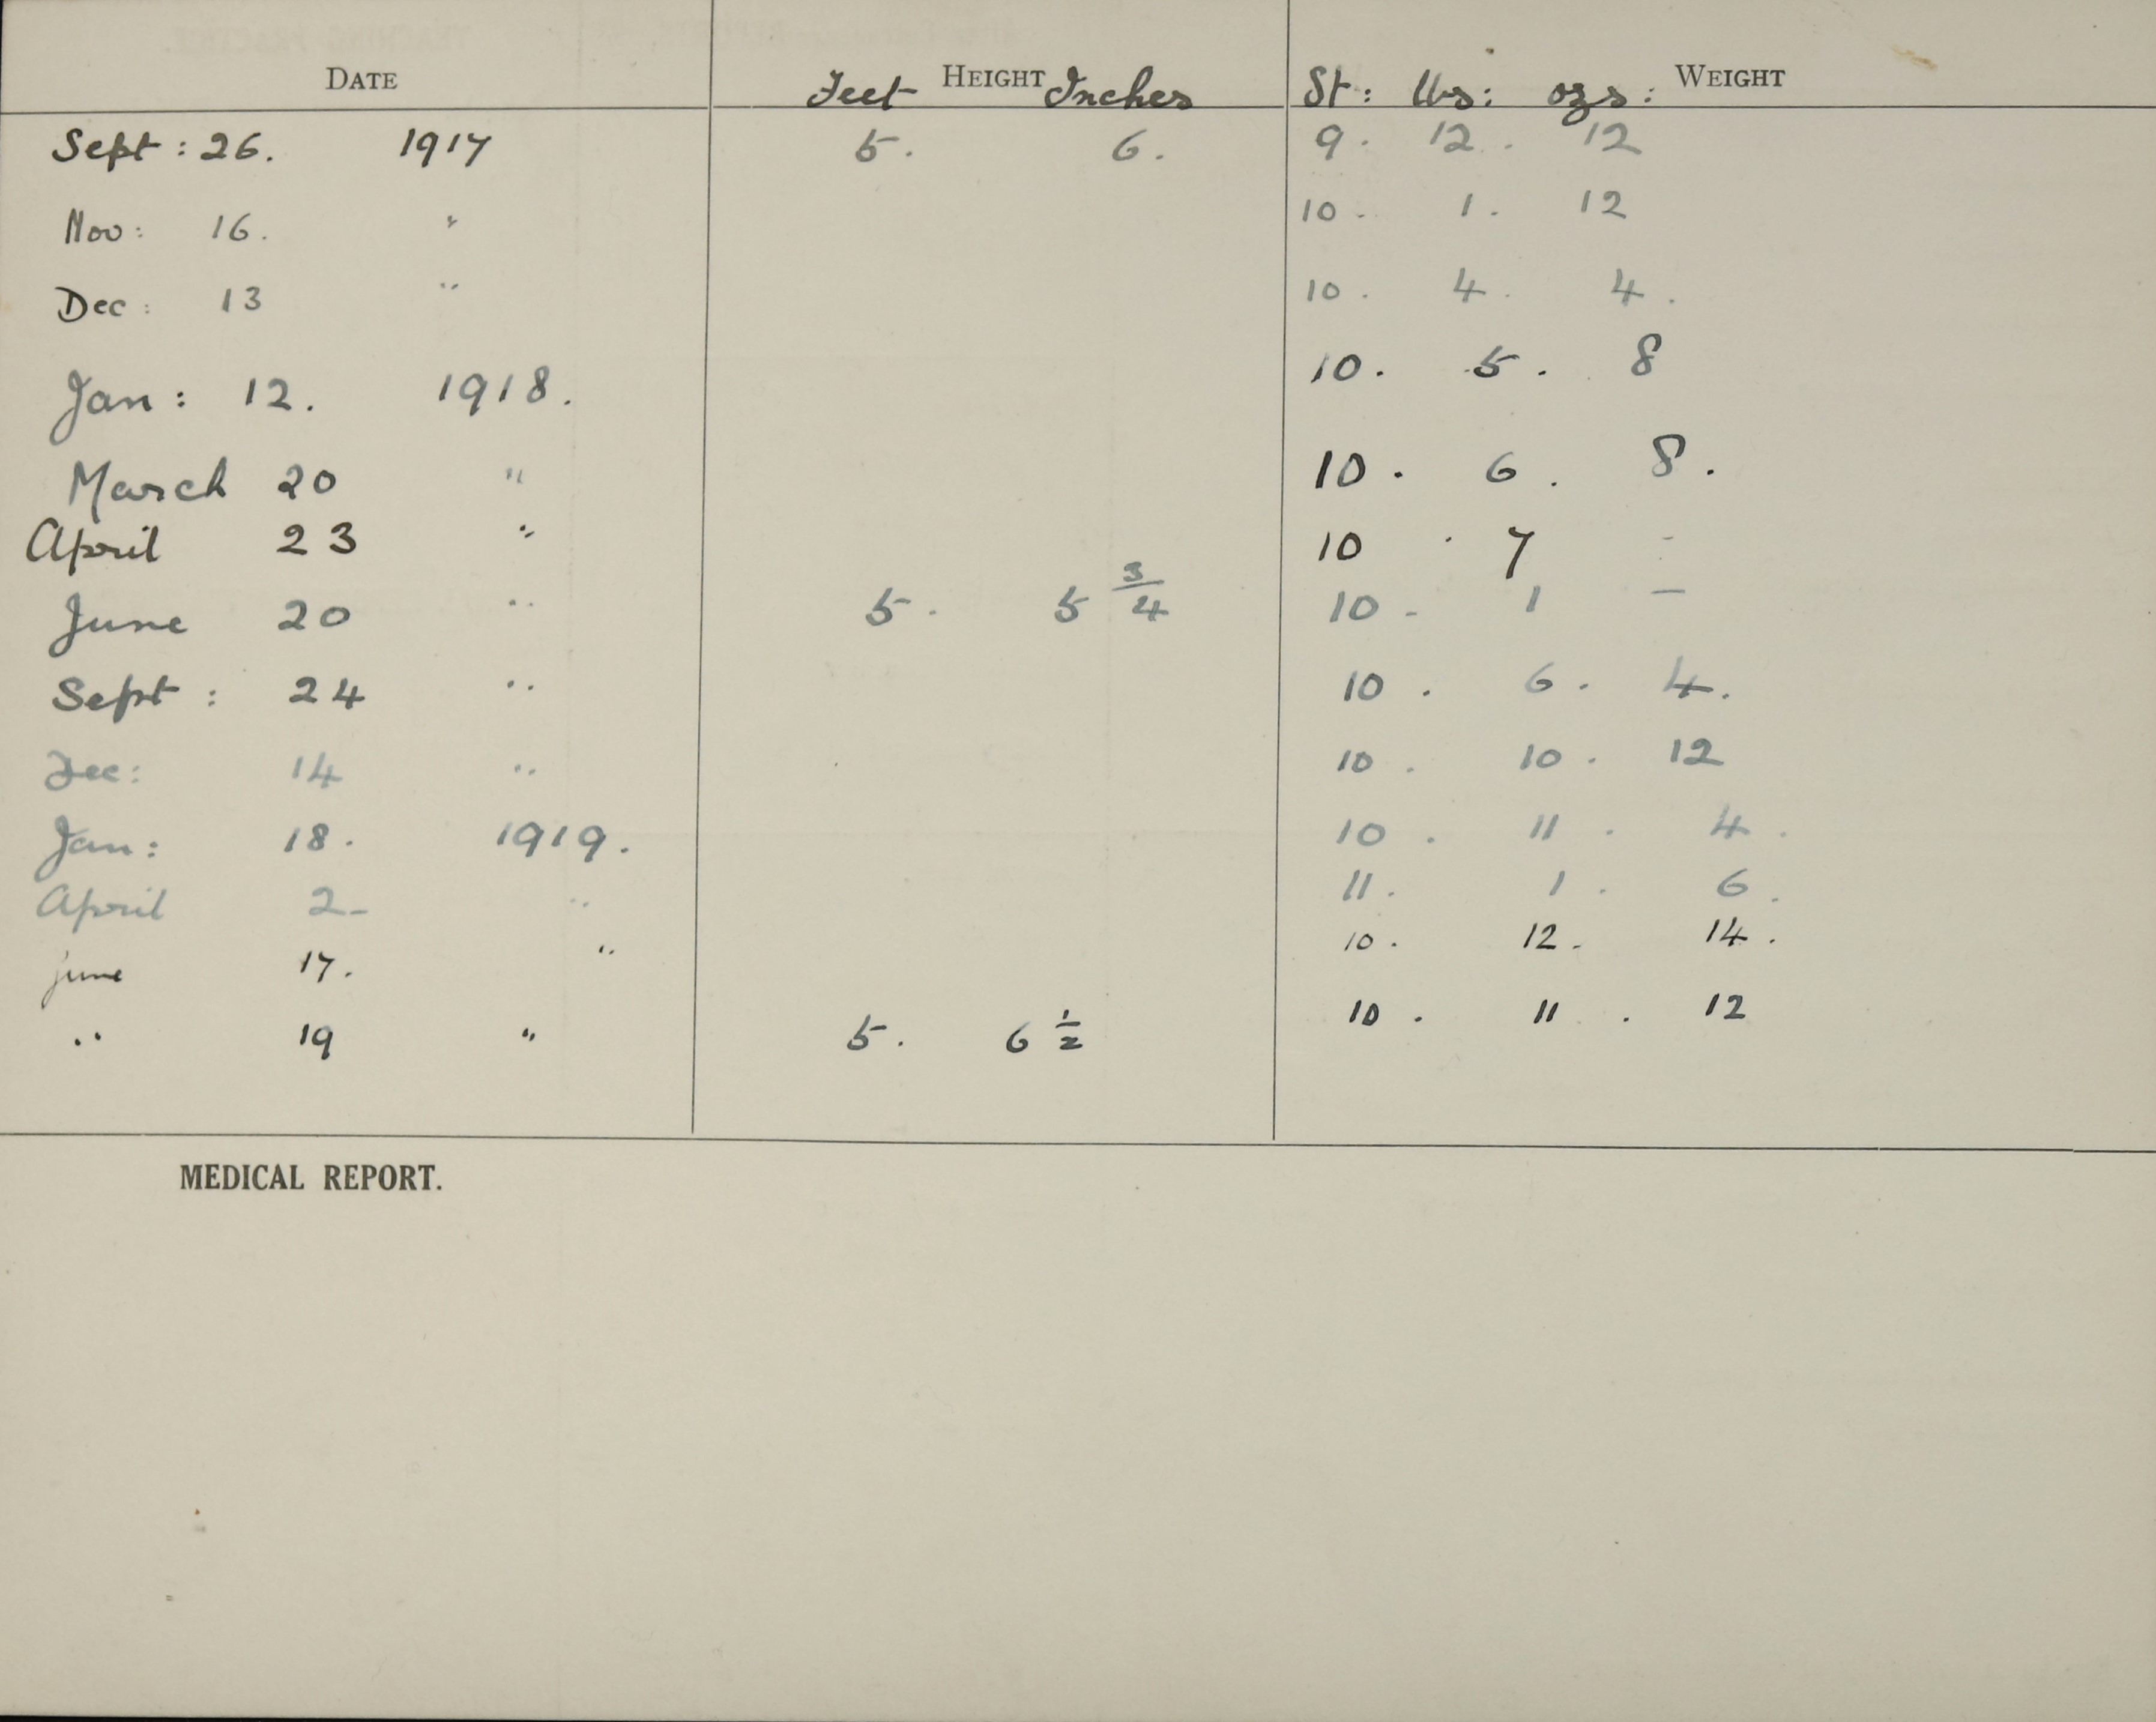 DATE Feet HEIGHT Inches St: lbs: ozs: WEIGHT
Sept: 26. 1917 5. 6. 9. 12. 12
Nov: 16. " 10. 1. 12
Dec: 13 " 10. 4. 4.
Jan: 12. 1918. 10. 5. 8
March 20 " 10. 6. 8.
April 23 " 10. 7 -
June 20 " 5. 5 3/4 10. 1 -
Sept: 24 " 10. 6. 4.
Dec: 14 " 10. 10. 12
Jan: 18. 1919. 10. 11. 4.
April 2 - " 11. 1. 6.
June 17. " 10. 12. 14.
" 19 " 5. 6 1/2 10. 11. 12
MEDICAL REPORT.